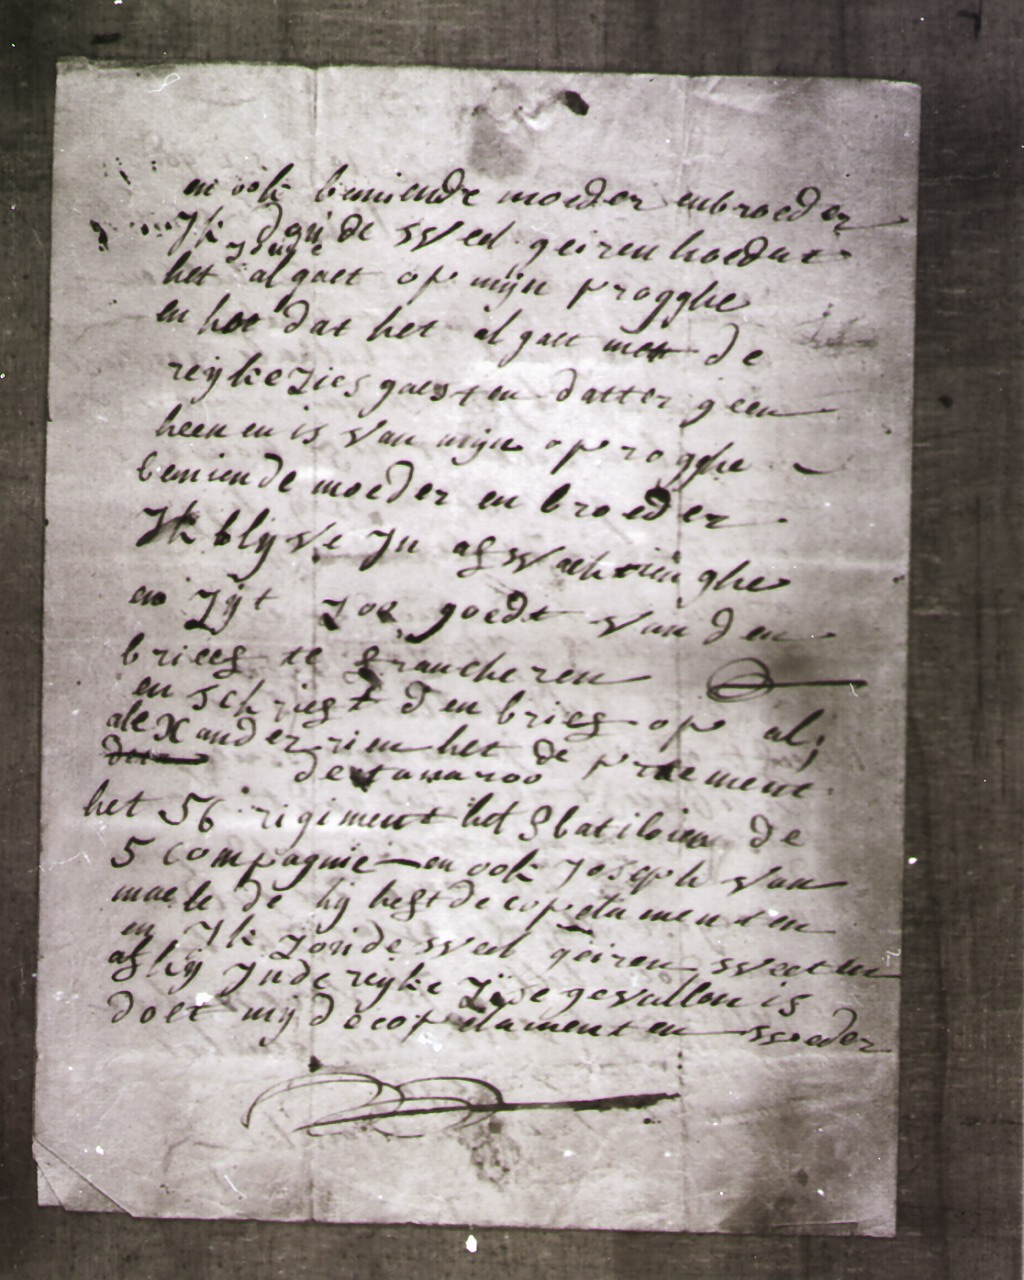 en ook beminde moeder enbroeder
Jk zoude weel geiren hoedat
het al gaet op mijn progghe
en hoe dat het al gaet met de
reijkezies gaesten datter geen
heen en is van mijn oprogghe
beminde moeder en broeder
Jk blijve Jn afwachtinghe
en zijt zoo goedt van den
brieef te francheren
en schrieft den brief op al;
alexanderrien het de preement
de tawaroo
het 56 rigiment het 8 batiloien de
5 compagnie en ook Joseph van
maele de hij heft de copelamenten
en Jk zoude weel geiren weeten
af hij Jnde reijke zijse gevallen is
doet mij de copelamenten weeder